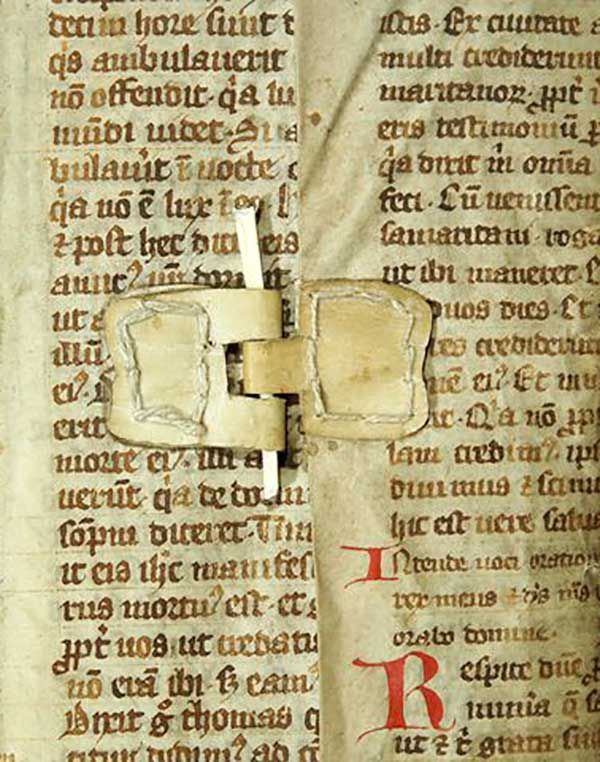 decim hore sunt
q̇s ambulauerit
nō offendit· q̇a lu
mūdi uidet· Si a
bulau̇it ī nocte
q̇a nō ē lux ī eo· h
⁊ post hec dicit eis
amic⁹ nr̄ dormit
ut a
illū
ei⁹·
erit
morte ei⁹· illi a
uerūt· q̇a de dormi
sōpni diceret· Tūc
it eis ih̄c manifes
rus mortu⁹ est· et g
ꝓpt̄ uos ut credatis
nō erā ibi· sꝫ eam⁹
Dixit g̊ thomas q
citur didim⁹ ad
istis· Ex ciuitate a
multi crediderunt
maritanoꝝ· ꝓpt̄
eris testimoniū ꝑ
q̇a dixit m̄ omīa
feci· Cū uenissent
samaritani· roga
ut ibi maneret·
duos dies· Et
res crediderunt
Et mu
Q̇a nō ꝓp
lam credim⁹· ipi
diuimus ⁊ scim
hic est uere salua
Intende uoci oration
rex meus ⁊ ds̄ ms̄
orabo domine·
Respice dn̄e
ut ⁊ grata